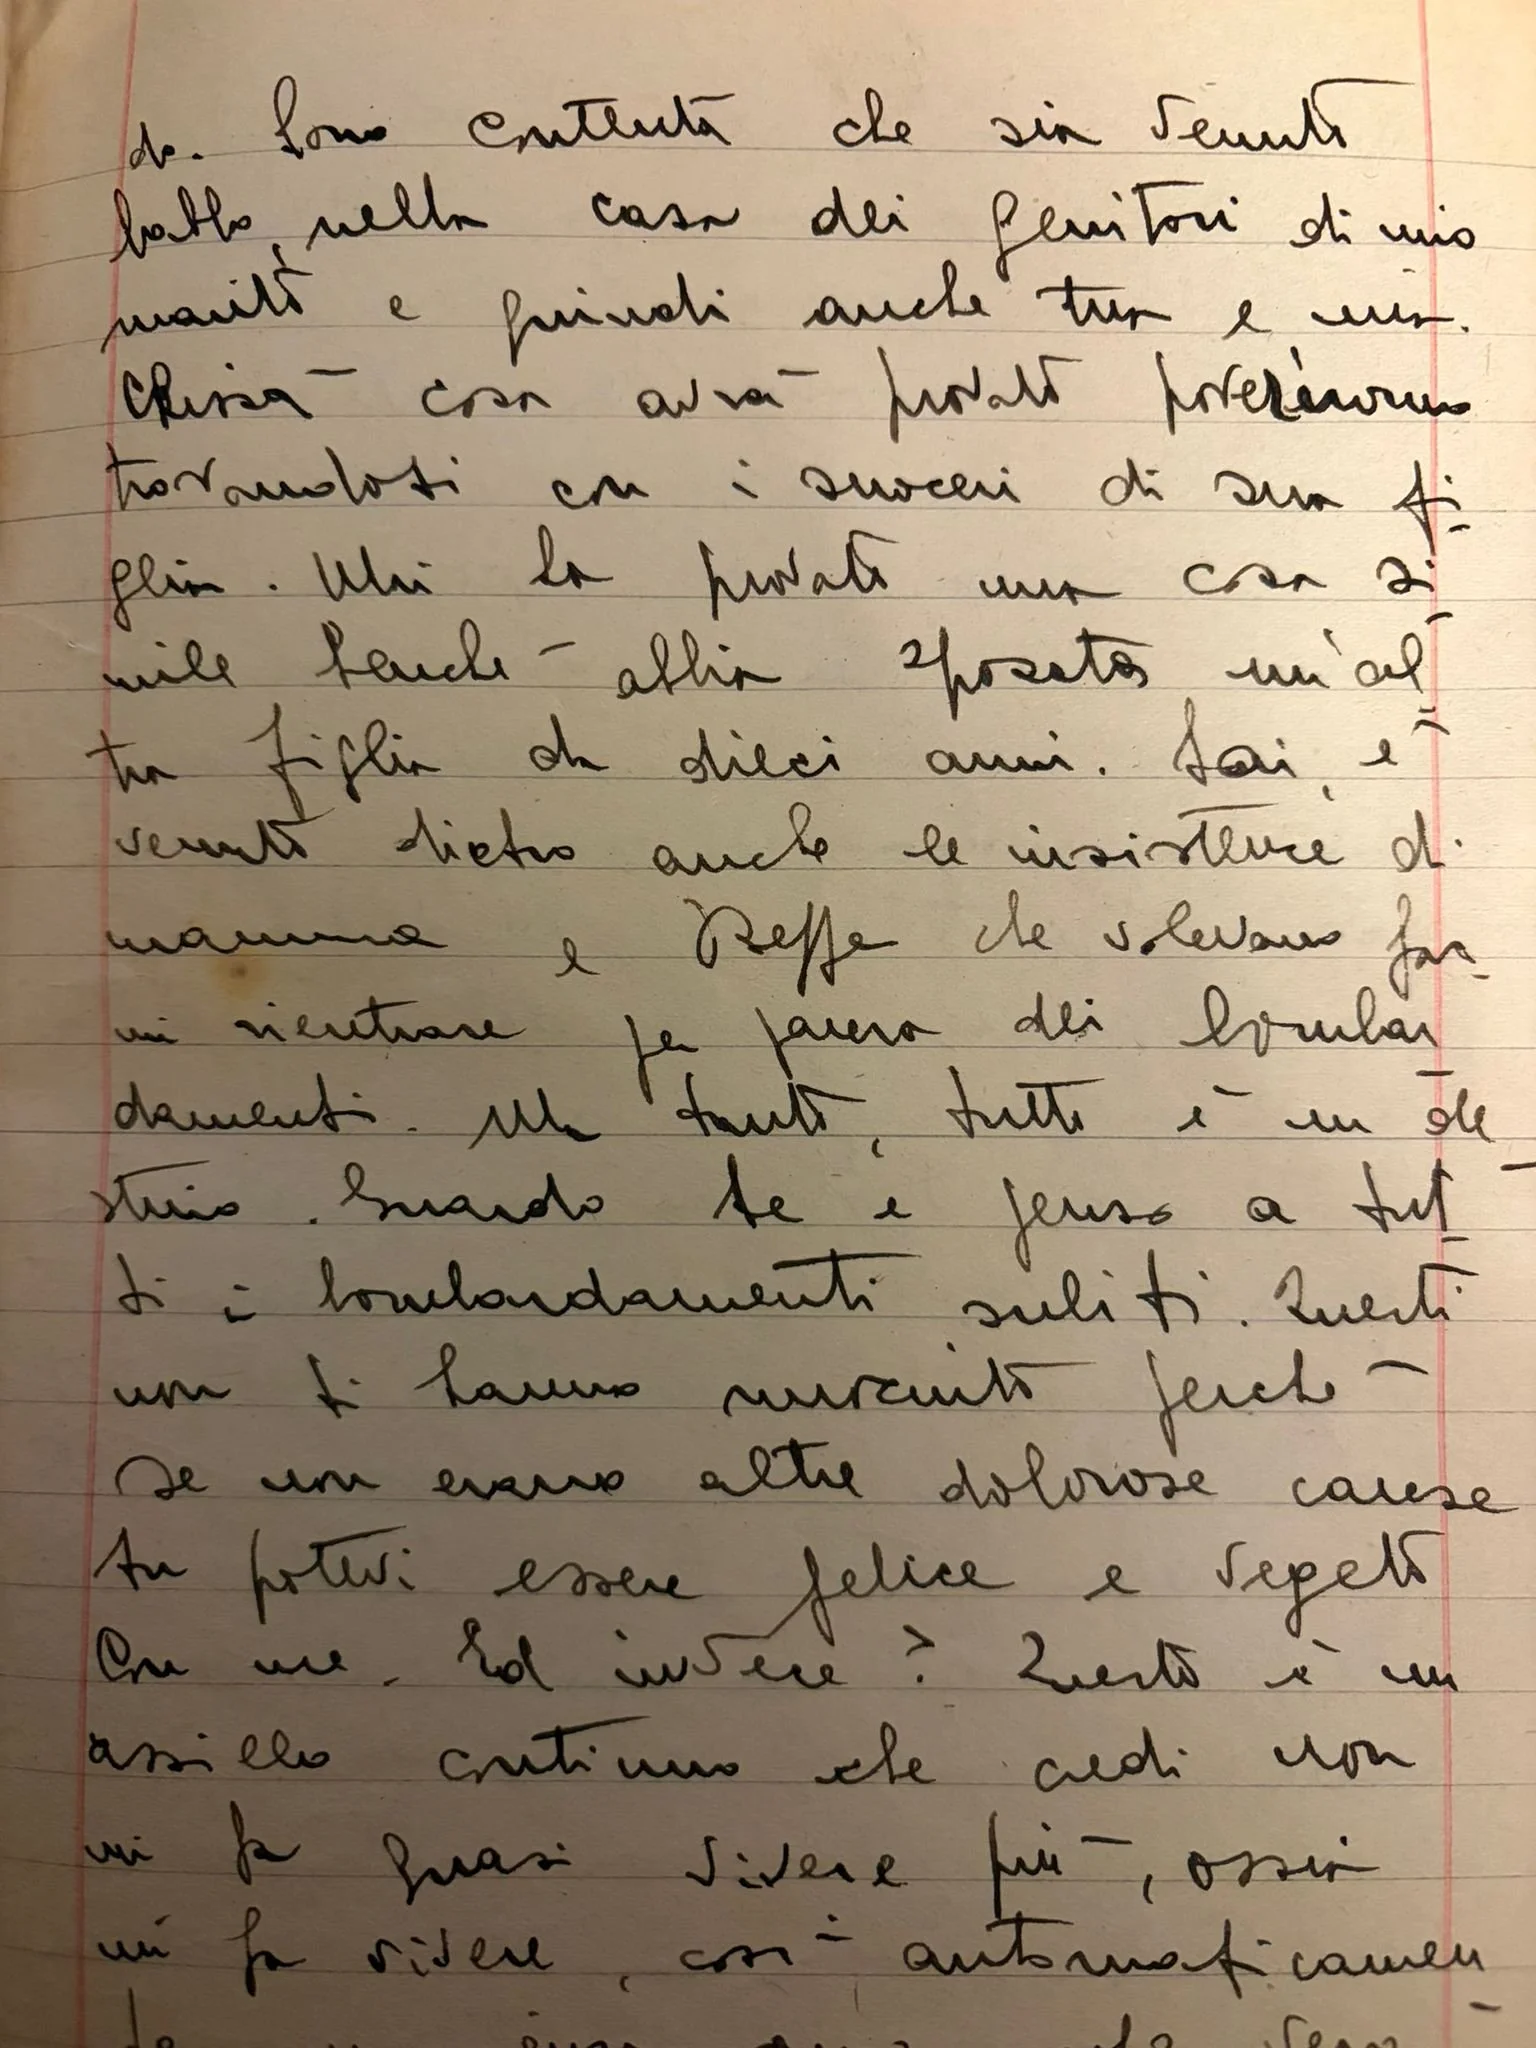 do. Sono contenta che sia venuto
babbo, nella casa dei genitori di mio
marito e quindi anche tua e mia.
Chissà cosa avrà provato poverinouno
trovandosi con i suoceri di sua fi-
glia. Mai ha provato una cosa si-
mile benché abbia sposata un'al-
tra figlia da dieci anni. Sai, è
venuto dietro anche le insistenze di
mamma e Beppe che volevano far-
mi rientrare per paura dei bombar-
damenti. Ma tanto, tutto è un de-
stino. Guardo te e penso a tut-
ti i bombardamenti subiti. Questi
non ti hanno nuociuto perché
se non erano altre dolorose cause
tu potevi essere felice e vegeto
con me. Ed invece? Questo è un
assillo continuo che credi non
mi fa quasi vivere più, ossia
mi fa vivere, così automaticamen-